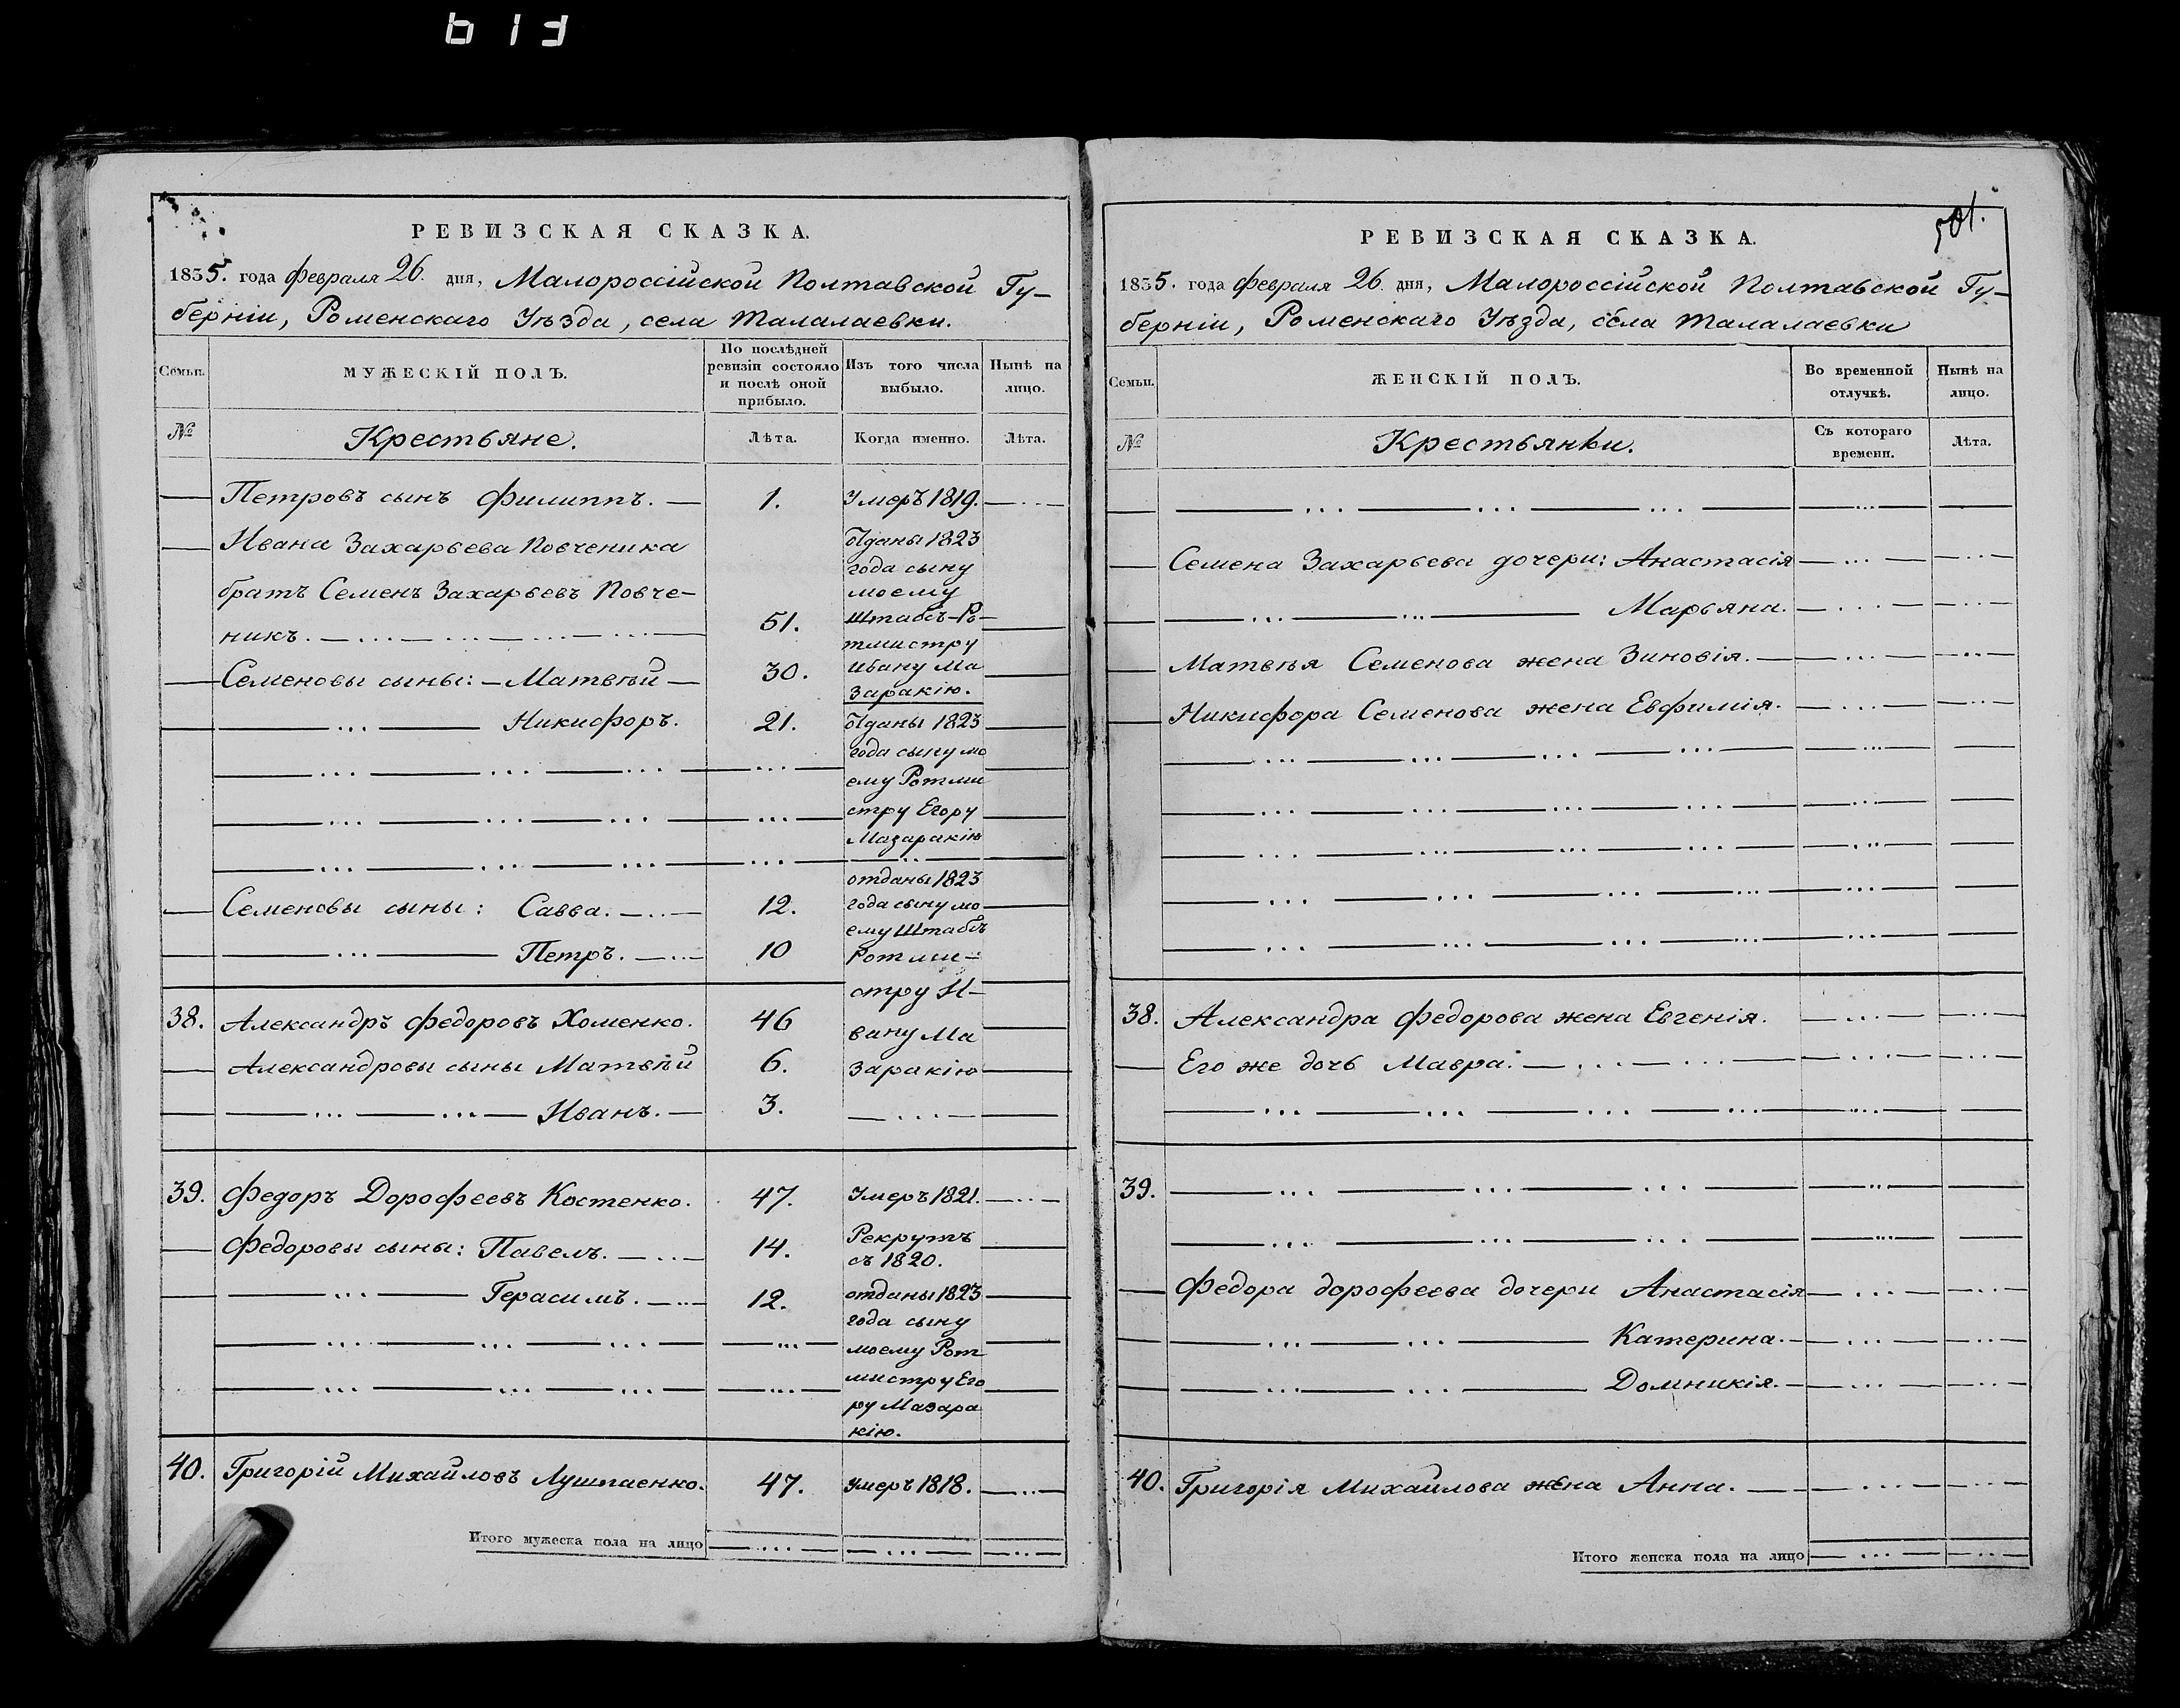 613
РЕВИЗСКАЯ СКАЗКА.
1835. года Февраля 26. дня, Малороссійской Полтавской Гу-
берніи, Роменскаго Уѣзда, села Талалаевки.
Семьи.
МУЖЕСКІЙ ПОЛЪ.
По послѣдней
ревизіи состояло
и послѣ оной
прибыло.
Изъ того числа
выбыло.
Нынѣ на
лицо.
№
Крестьяне.
Лѣта.
Когда именно.
Лѣта.
Петровъ сынъ Филиппъ. 1. Умеръ 1819.
Ивана Захарьева Повченика
братъ Семенъ Захарьевъ Повче-
никъ. 51.
Отданы 1823
года сыну
моему
Штабсъ-Ро-
тмистру
Ивану Ма
заракію.
Семеновы сыны: Матвѣй 30.
Никифоръ. 21.
Отданы 1823
года сыну мо
ему Ротми
стру Егору
Мазаракію
Семеновы сыны: Савва. 12.
Петръ. 10
отданы 1823
года сыну мо
ему Штабсъ
Ротми-
стру И-
вану Ма
заракію
38. Александръ Федоровъ Хоменко. 46
Александровы сыны Матвѣй 6.
Иванъ. 3.
39. Федоръ Дорофеевъ Костенко. 47. Умеръ 1821.
Федоровы сыны: Павелъ. 14. Рекрутъ
съ 1820.
Герасимъ. 12. отданы 1823
года сыну
моему Рот
мистру Его
ру Мазара
кію.
40. Григорій Михайловъ Лушпаенко. 47. Умеръ 1818.
Итого мужеска пола на лицо
501.
РЕВИЗСКАЯ СКАЗКА.
1835. года Февраля 26. дня, Малороссійской Полтавской Гу-
берніи, Роменскаго Уѣзда, села Талалаевки
Семьи.
ЖЕНСКІЙ ПОЛЪ.
Во временной
отлучкѣ.
Нынѣ на
лицо.
№
Крестьянки.
Съ котораго
времени.
Лѣта.
Семена Захарьева дочери: Анастасія
Марьяна.
Матвѣя Семенова жена Зиновія.
Никифора Семенова жена Евфимія.
38. Александра Федорова жена Евгенія.
Его же дочь Мавра.
39.
Федора Дорофеева дочери Анастасія
Катерина.
Домникія.
40. Григорія Михайлова жена Анна.
Итого женска пола на лицо